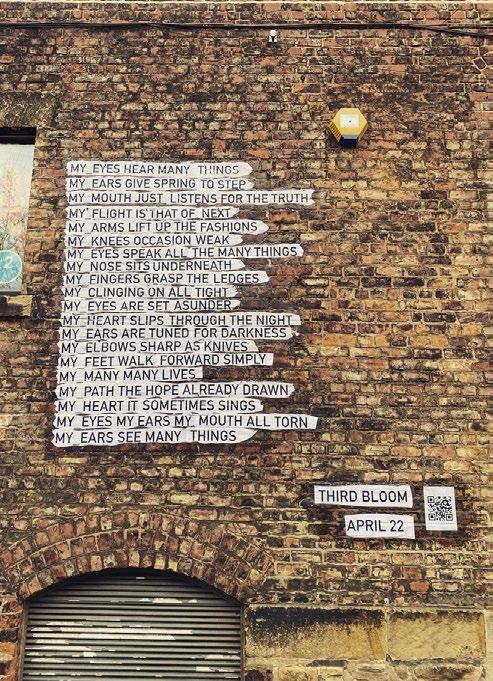 MY EYES HEAR MANY THINGS
MY EARS GIVE SPRING TO STEP
MY MOUTH JUST LISTENS FOR THE TRUTH
MY FLIGHT IS THAT OF NEXT
MY ARMS LIFT UP THE FASHIONS
MY KNEES OCCASION WEAK
MY EYES SPEAK ALL THE MANY THINGS
MY NOSE SITS UNDERNEATH
MY FINGERS GRASP THE LEDGES
MY CLINGING ON ALL TIGHT
MY EYES ARE SET ASUNDER
MY HEART SLIPS THROUGH THE NIGHT
MY EARS ARE TUNED FOR DARKNESS
MY ELBOWS SHARP AS KNIVES
MY FEET WALK FORWARD SIMPLY
MY MANY MANY LIVES
MY PATH THE HOPE ALREADY DRAWN
MY HEART IT SOMETIMES SINGS
MY EYES MY EARS MY MOUTH ALL TORN
MY EARS SEE MANY THINGS
THIRD BLOOM
APRIL 22